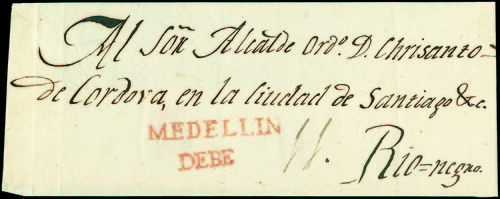 Al Soñ Alcalde Ordº. D. Chrisanto
de Cordova, en la Ciudad de Santiago &c.
MEDELLIN
DEBE
11.
Rio=negro.